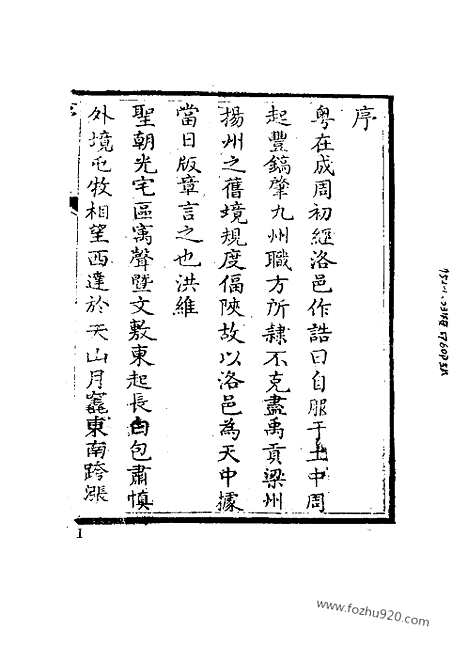 序
粤在成周初經洛邑作誥曰自服于土中周
起豐鎬肇九州職方所隸不克盡禹貢梁州
揚州之舊境規度偪陜故以洛邑為天中據
當日版章言之也洪維
聖朝光宅區寓聲曁文敷東起長白包肅慎
外境屯牧相望西達於天山月竁東南跨漲
1
www.fozhu920.com